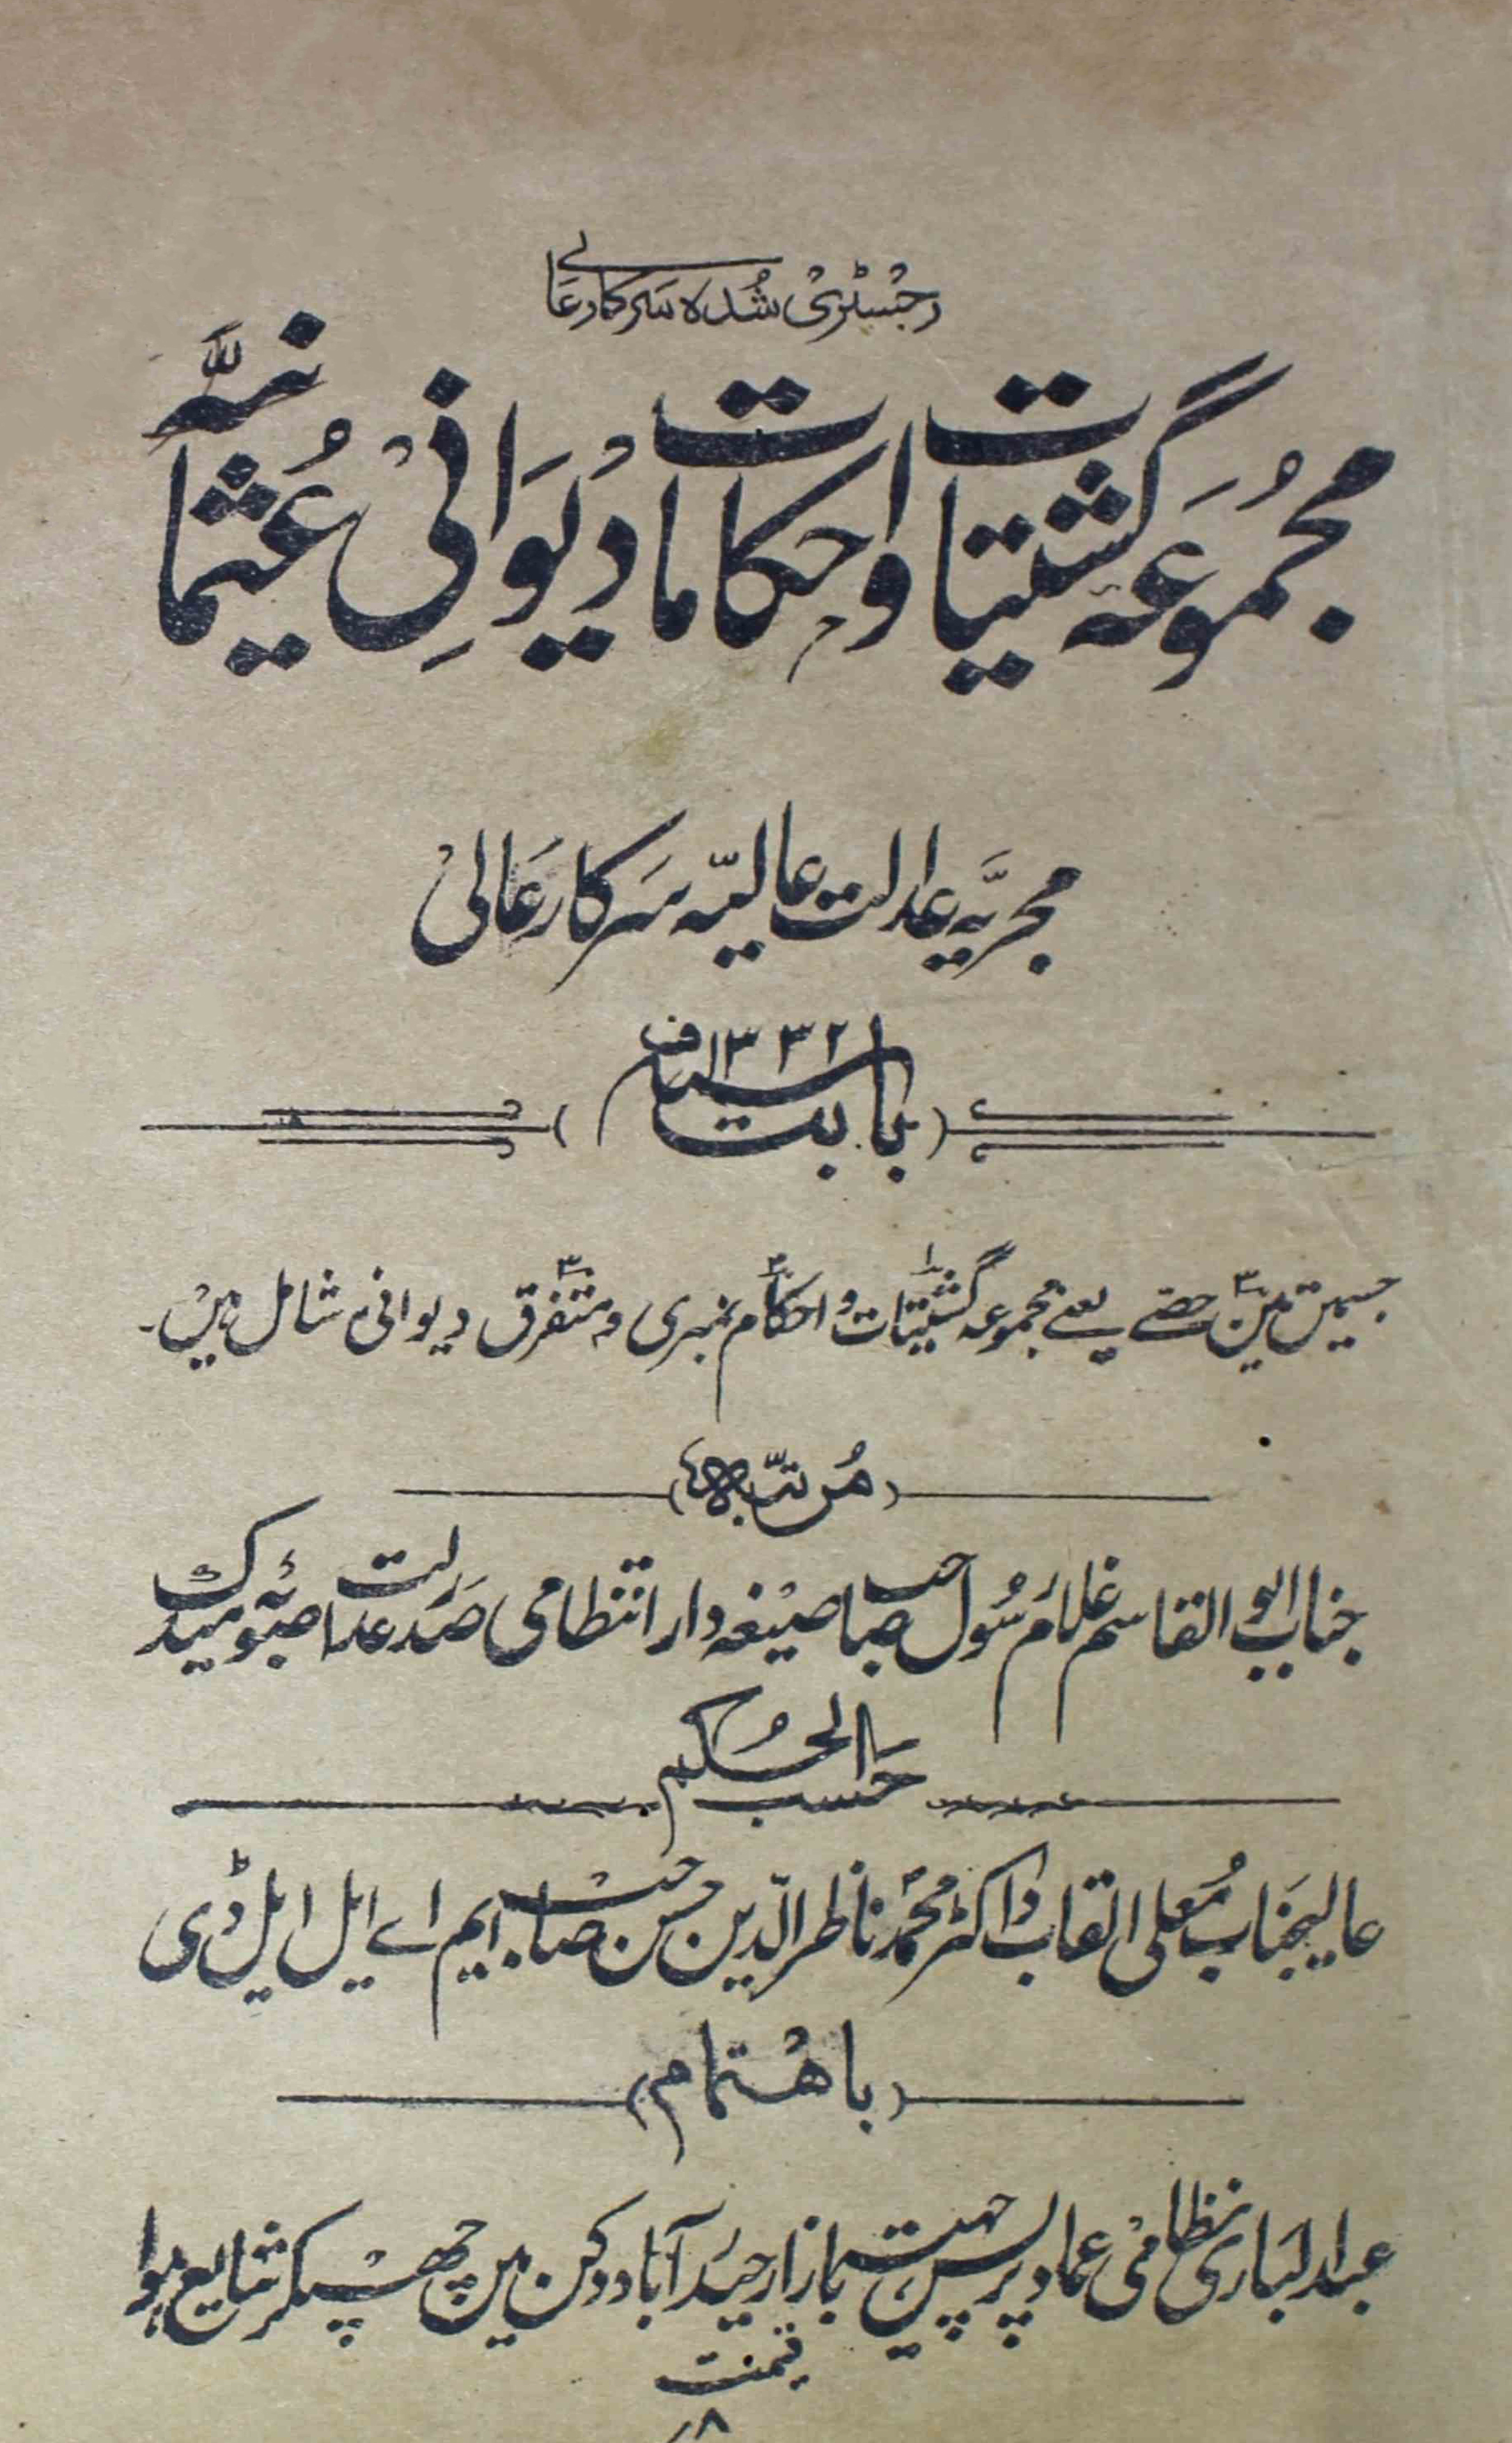 رجسٹری شدہ سرکار عالی
مجموعہ گشتیات و احکامات دیوانی عثمانیہ
مجریہ عدالت عالیہ سرکار عالی
بابت سنہ ۱۳۳۲ ف
جسمیں تین ۳ حصے یعنے مجموعہ گشتیات ۱ و احکام ۲ نمبری و متفرق ۳ دیوانی شامل ہیں۔
مرتبہ
جناب ابو القاسم غلام رسول صاحب صیغہ دار انتظامی صدر عدالت صوبہ میدک
حسب الحکم
عالیجناب معلی القاب ڈاکٹر محمد ناظر الدین حسن صاحب ایم اے ایل ایل ڈی
باہتمام
عبدالباری نظامی عماد پریس چھتہ بازار حیدرآباد دکن میں چھپکر شایع ہوا
قیمت
۸؍